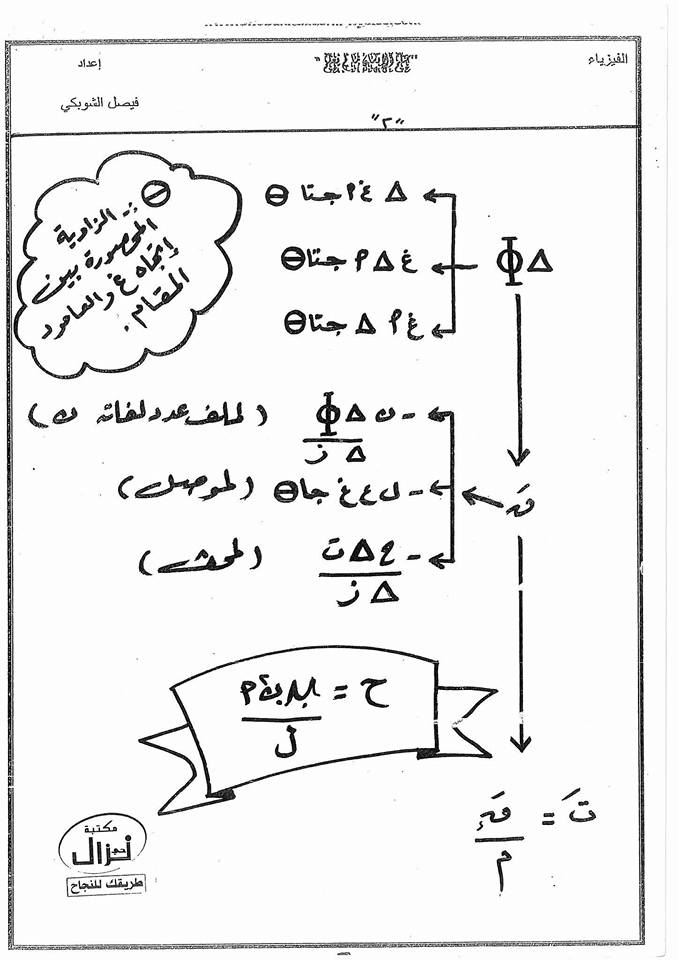 الفيزياء
إعداد
فيصل الشوبكي
"٢"
θ : الزاوية
المحصورة بين
إتجاه غ والعامود
المقام .
ΔΦ
Δ غ أ جتا θ
غ Δ أ جتا θ
غ أ Δ جتا θ
قَد
- ن ΔΦ / Δ ز (لملف عدد لفاته ن)
- ل ع غ جا θ (لموصل)
- ح Δ ت / Δ ز (لمحث)
ل
تَ = قَد / م
مكتبة
نزال
طريقك للنجاح